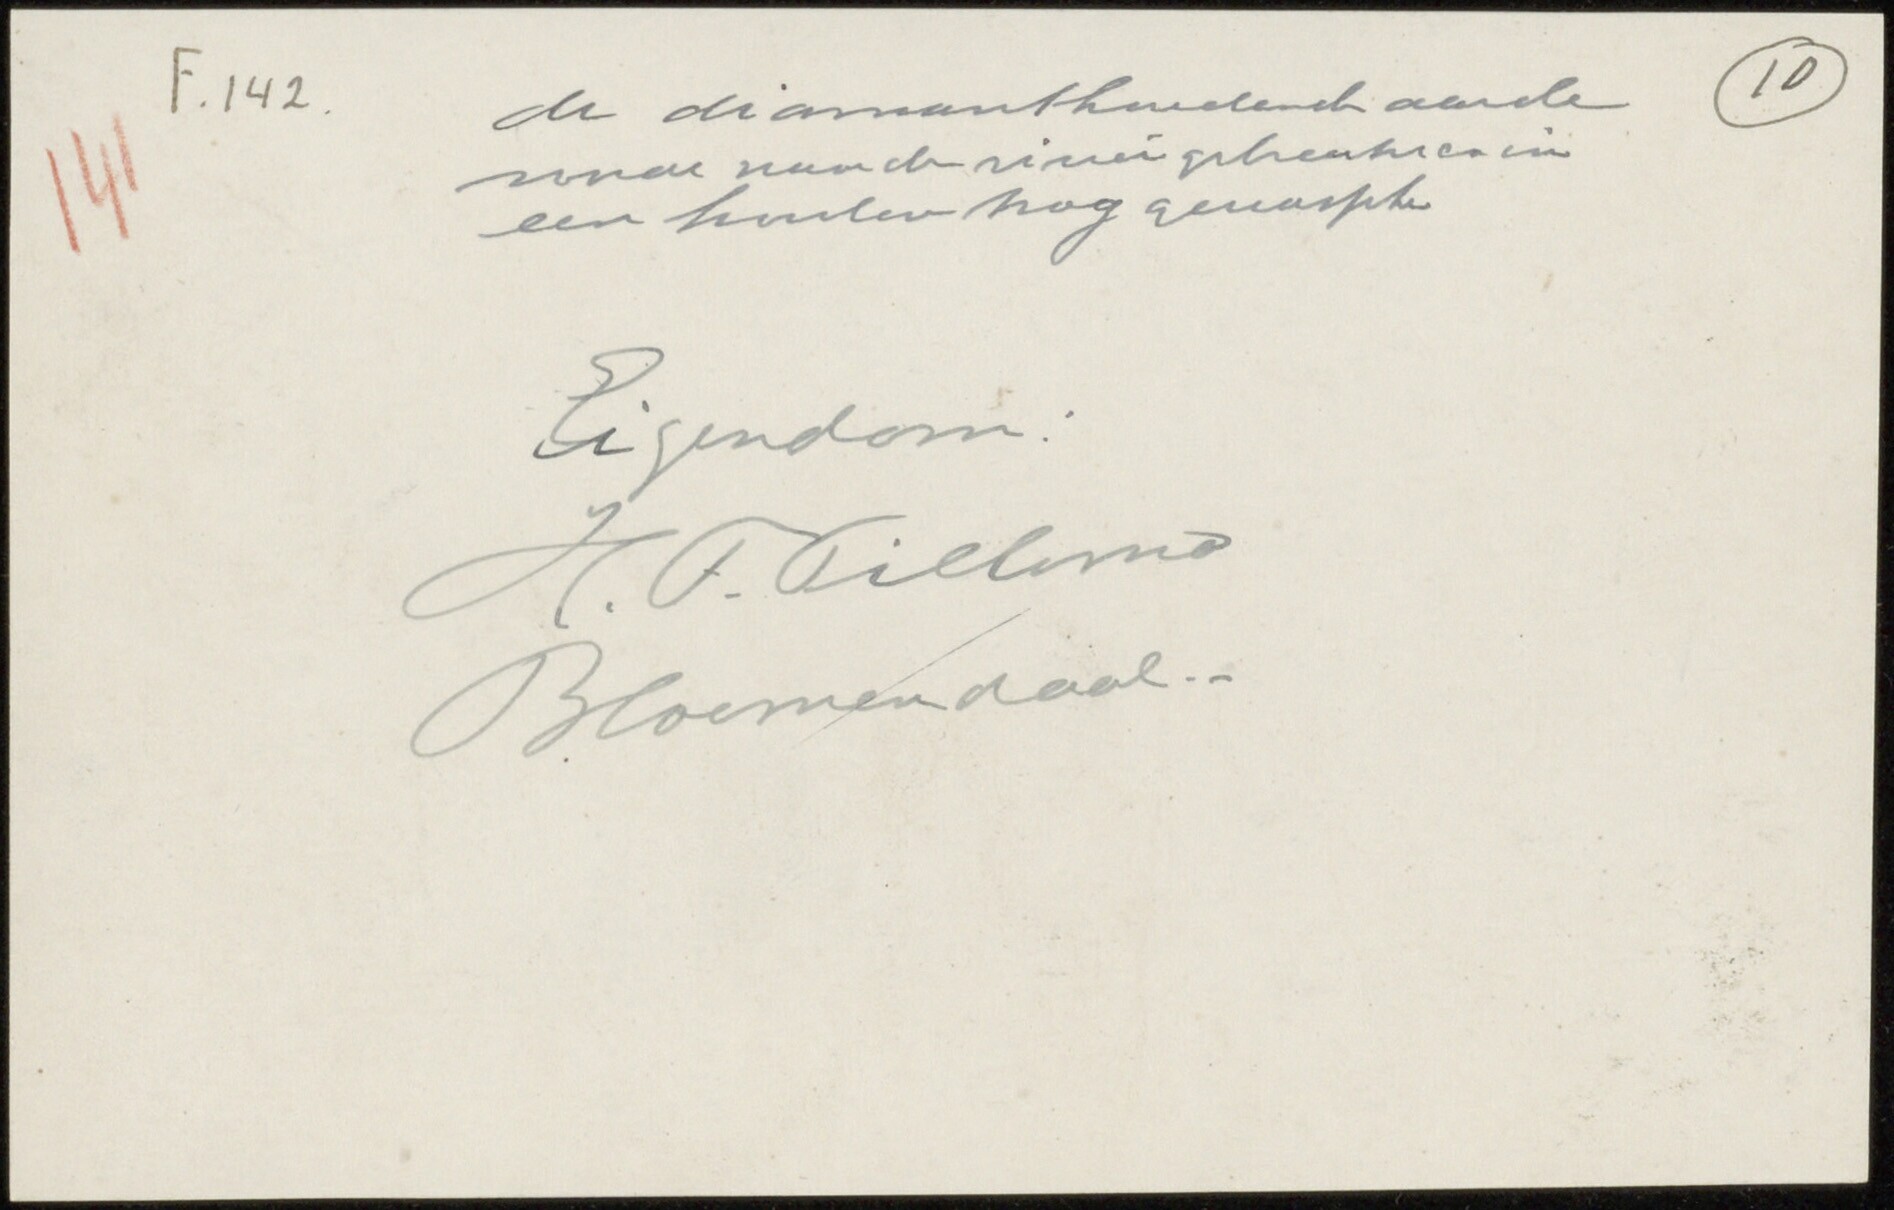 F.142.
10
141
de diamanthoudende aarde
wordt naar de rivier gebracht en in
een houten trog gewasschen
Eigendom:
H. F. Tillema
Bloemendaal.-